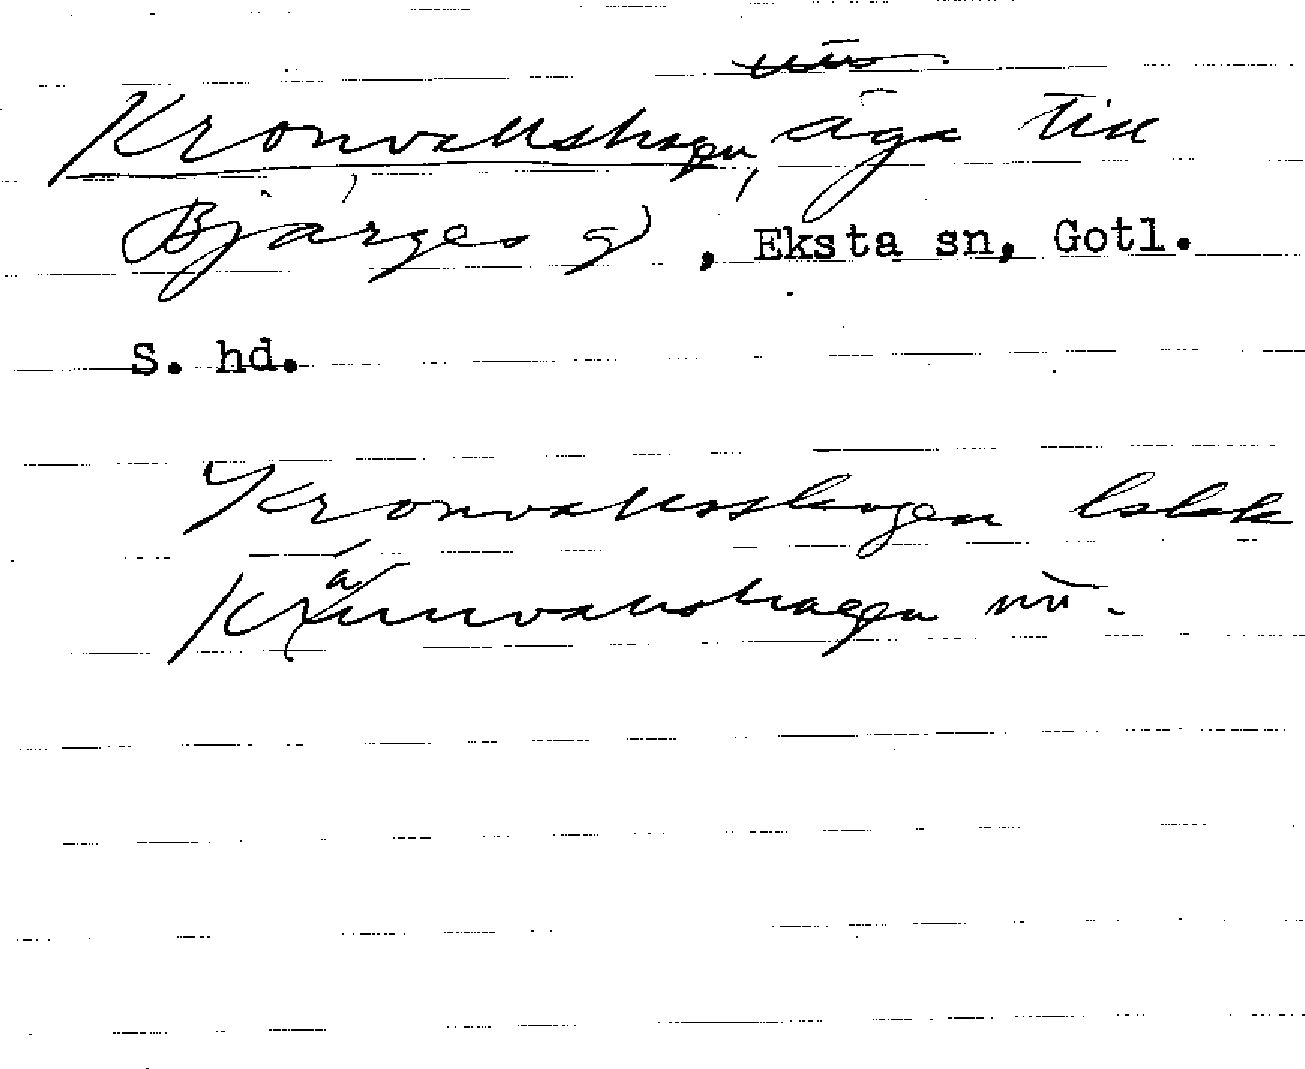 Kronvallshagen, äga till
Bjärges g), Eksta sn, Gotl.
S. hd.
Kronvallsskogen
Kränvallshagen